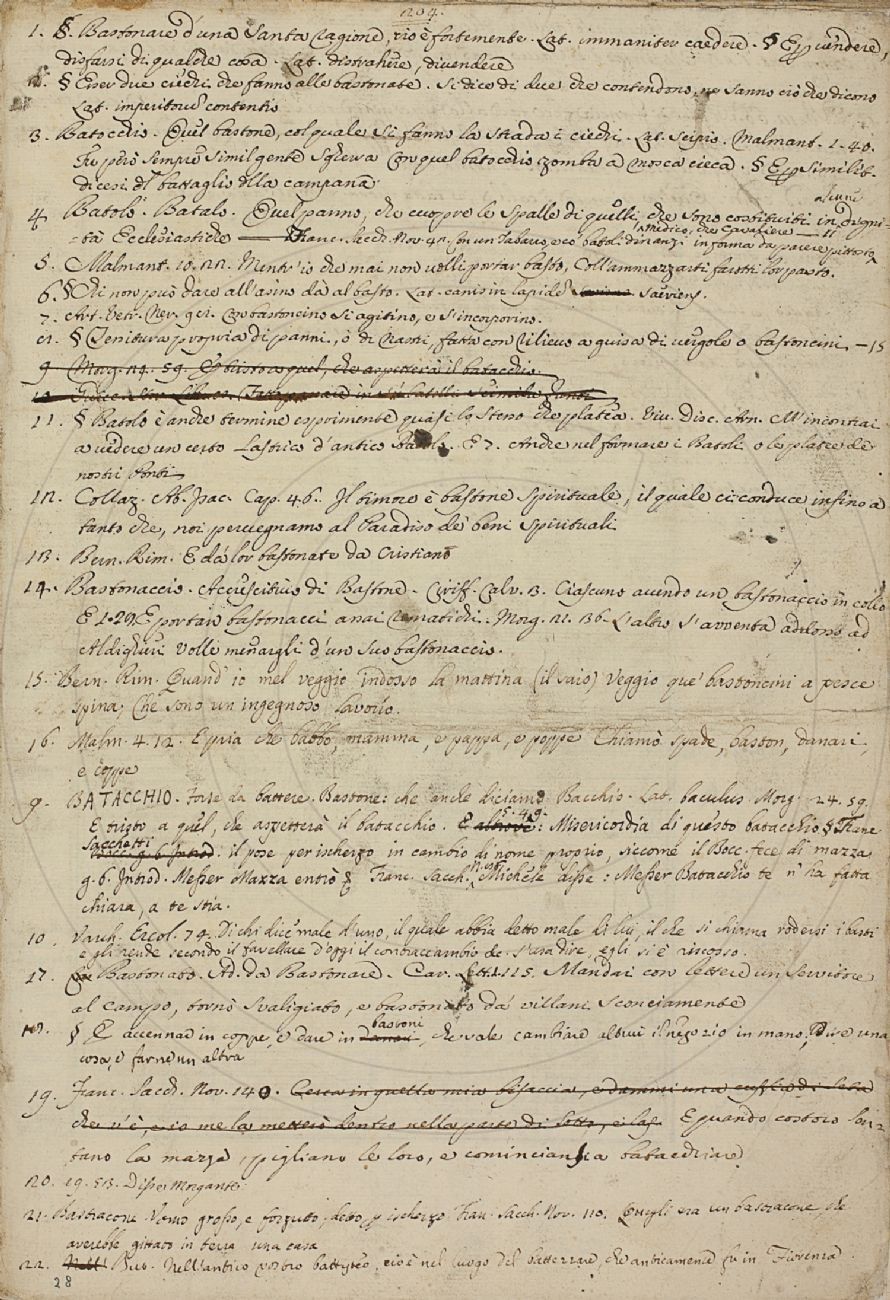 204.
1. §. Bastonare d'una Santa ragione, cioè fortemente. Lat. immaniter caedere. § E per vendere,
disfarsi di qualche cosa. Lat. distrahere, divendere
2. § Esser due ciechi che fanno alle bastonate. Si dice di due che contendono, ne sanno ciò che dicono
Lat. imperitorum contentio
3. Batocchio. Quel bastone, col quale si fanno la strada i ciechi. Lat. Scipio. Malmant. 1. 40.
Che però sempre simil gente scherza Con quel batocchio zomba a mosca cieca. § E per similit.
dicesi il battaglio della campana
4. Batolo. Batalo. Quel panno, che cuopre le spalle di quelli, che sono costituiti in alcune digni-
tà Ecclesiastiche Franc. Sacch. Nov. con un tabarro, e co' batoli dinanzi in forma da parere piuttosto
Medico, che Cavaliere
5. Malmant. 10. 22. Mentr'io che mai non volli portar basto, Coll'ammazzarti farotti lor pasto.
6. § Chi non può dare all'asino dà al basto. Lat. canis in lapidem saeviens.
7. Art. Vetr. Ner. 91. Con bastoncino si agitino, e s'incorporino.
§ Tenitura propria di panni, o di nastri, fatta con rilievo a guisa di vergole o bastoncini — 15
9. Morg. 24. 59. E tristo a quel, che aspetterà il batacchio.
11. § Batolo è anche termine esprimente quasi lo stesso che platea. Viv. Disc. Arn. M'incontrai
a vedere un certo lastrico d'antico Batolo. E 7. Anche nel formare i Batoli o le platee de
nostri Ponti
12. Collaz. Ab. Isac. Cap. 46. Il timore è bastone spirituale, il quale ci conduce infino a
tanto che, noi pervegnamo al Paradiso de' beni spirituali
13. Bern. Rim. E dà lor bastonate da Cristiano
14. Bastonaccio. Accrescitivo di Bastone. Ciriff. Calv. 3. Ciascuno avendo un bastonaccio in collo
E 1. 29. E portar bastonacci assai Morg. 21. 36. L'altro s'avventa addosso ad
Aldighieri Volle menargli d'un suo bastonaccio.
15. Bern. Rim. Quand'io mel veggio indosso la mattina (il saio) Veggio que' bastoncini a pesce
spina, Che sono un ingegnoso lavorio.
16. Malm. 4. 12. E pria che babbo, mamma, e pappa, e poppe Chiamò spade, baston, danari,
e coppe
9. BATACCHIO. Forse da battere. Bastone: che anche diciamo Bacchio. Lat. baculus. Morg. 24. 59.
E tristo a quel, che aspetterà il batacchio. E altrove: 5. 49. Misericordia di questo batacchio § Franc
Sacchetti il pose per ischerzo in cambio di nome proprio, siccome il Bocc. fece di mazza
g. 6. Introd. Messer Mazza entrò Franc. Sacch. Michele disse: Messer Batacchio te n'ha fatta
chiara, a te stia.
10. Varch. Ercol. 74. Di chi dice male d'uno, il quale abbia detto male di lui, il che si chiama rodersi i basti
e gli rende secondo il favellare d'oggi il contraccambio s'usa dire, egli si è riscosso.
17. Bastonato. Ad. da Bastonare. Car. Lett. 1. 115. Mandai con lettere un servitore
al campo, tornò svaligiato, e bastonato da' villani sconciamente
18. § E accennare in coppe, e dare in bastoni, che vale cambiare altrui il negozio in mano; Dire una
cosa, e farne un altra
19. Franc. Sacch. Nov. 140. Cerca in quella mia bisaccia, e dammi una cuffia di seta
che v'è, e io me la metterò dentro nella parte di sotto, e las. E quando costoro sen-
tano la mazza, pigliano le loro, e cominciansi a batacchiare
20. 19. 53. Disse Morgante
21. Bastracone. Uomo grosso, e forzuto, detto p ischerzo. Fran. Sacch. Nov. 110. Quegli era un bastracone, che
averebbe gittato in terra una casa
22. But. Nell'antico vostro battisteo, cioè nel luogo del battezzare, che anticamente fu in Fiorenza
28